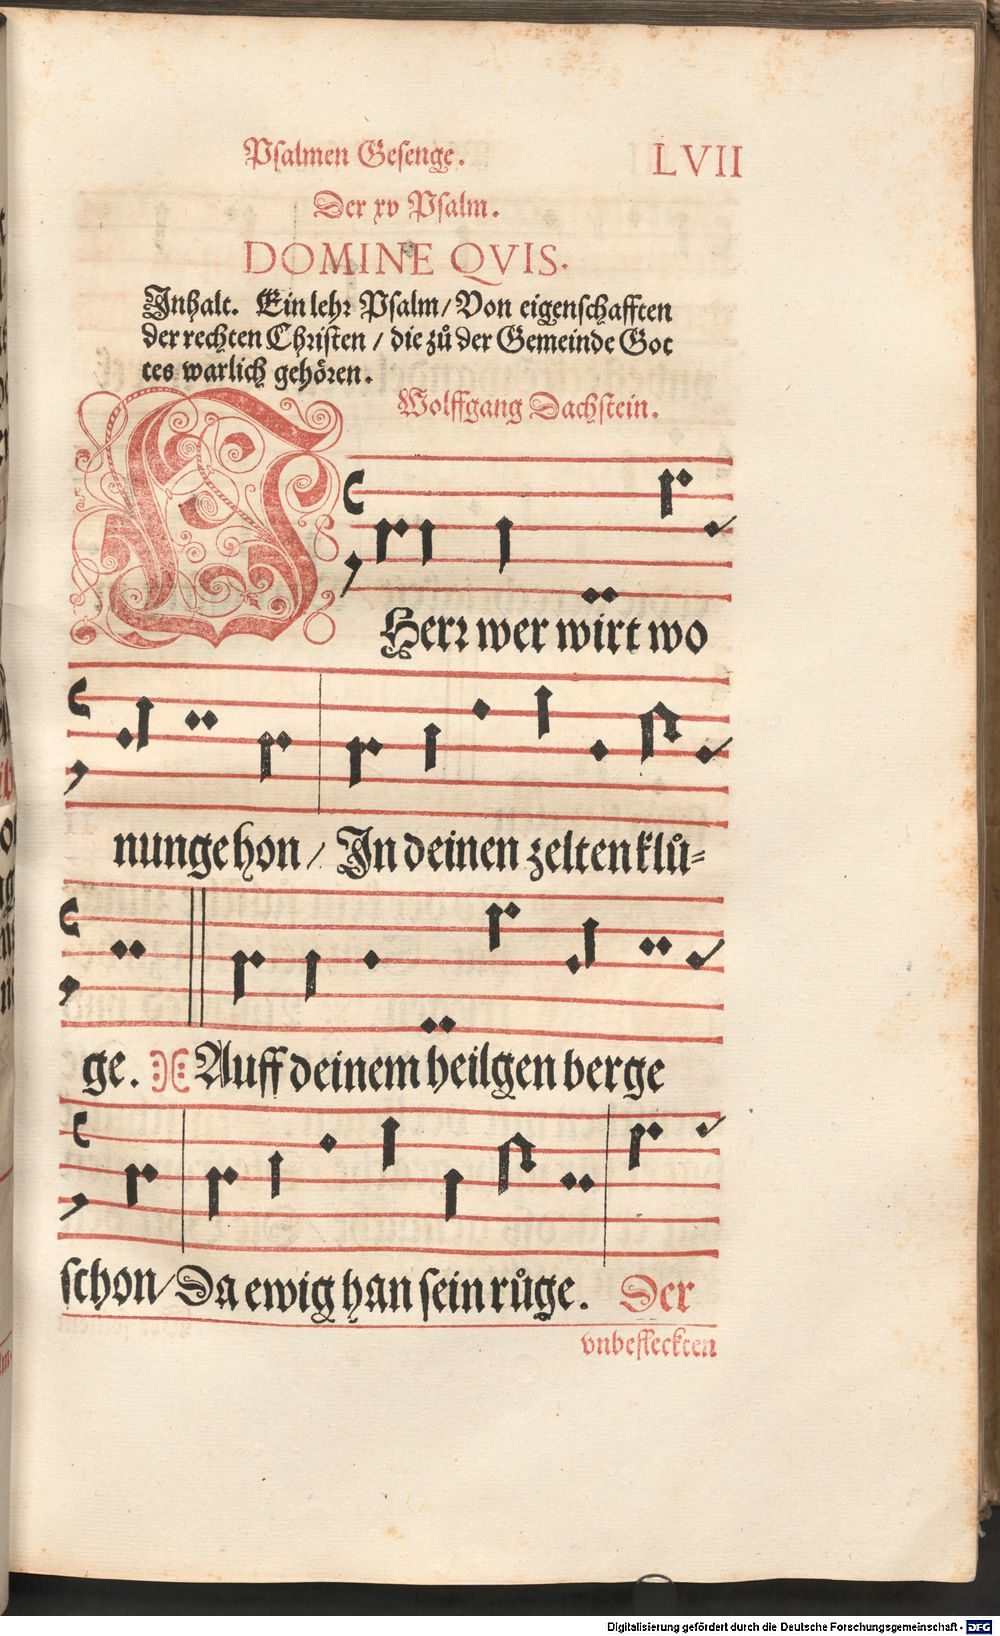 Psalmen Gesenge. LVII
Der xv Psalm.
DOMINE QVIS.
Inhalt. Ein lehr Psalm/ Von eigenschafften
der rechten Christen / die zů der Gemeinde Got
tes warlich gehören.
Wolffgang Dachstein.
O
Herr wer wirt wo
nunge hon / In deinen zelten klů-
ge. Auff deinem heilgen berge
schon/ Da ewig han sein růge. Der
vnbefleckten
Digitalisierung gefördert durch die Deutsche Forschungsgemeinschaft - DFG